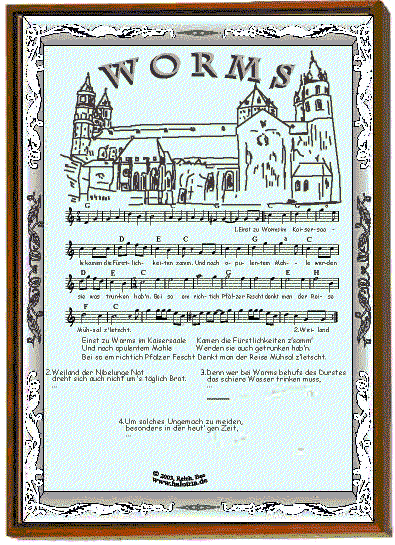 WORMS
G G G
1.Einst zu Worms im Kai-ser-saa -
D E C G a C
le kamen die Fürst-lich- kei-ten zamm. Und nach o-pu-len-tem Mah- le wer-den
D E C G E H
sie was trunken hab'n. Bei so em rich-tich Pfälzer Fescht denkt man der Rei-se
F C
Müh-sal z'letscht. 2.Wei- land
Einst zu Worms im Kaisersaale Kamen die Fürstlichkeiten z'samm'
Und nach opulentem Mahle Werden sie auch getrunken hab'n.
Bei so em richtich Pfälzer Fescht Denkt man der Reise Mühsal z'letscht.
2.Weiland der Nibelunge Not
dreht sich auch nicht um's täglich Brot.
...
3.Denn wer bei Worms behufs des Durstes
das schiere Wasser trinken muss,
...
4.Um solches Ungemach zu meiden,
besonders in der heut'gen Zeit,
...
© 2003, Reinh. Bee
www.halotria.de